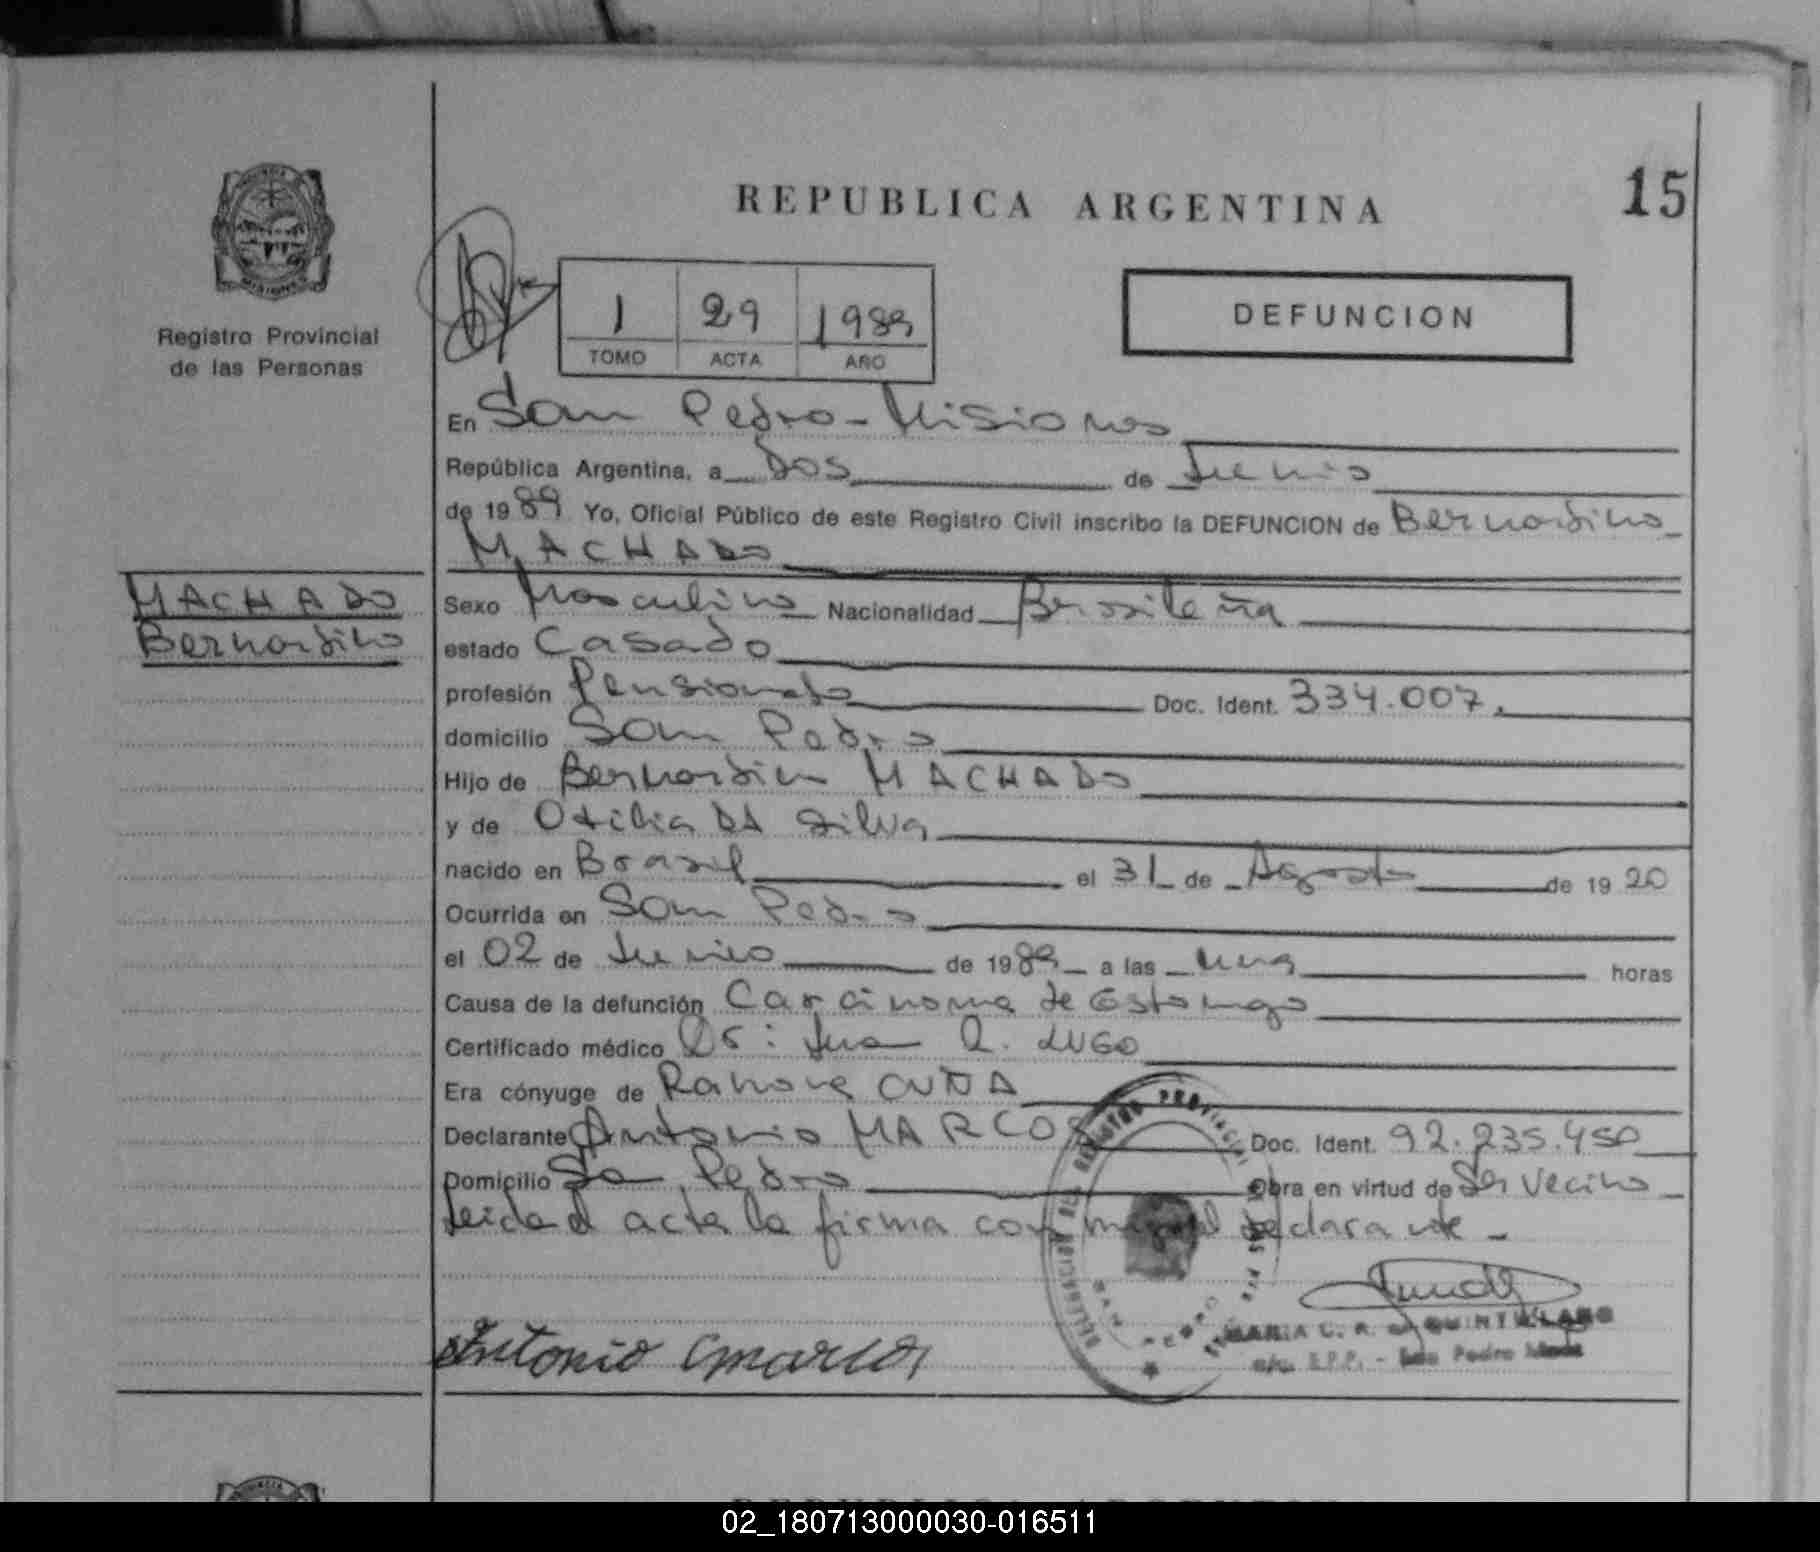 REPUBLICA ARGENTINA
15
Registro Provincial
de las Personas
1 29 1989
TOMO ACTA AÑO
DEFUNCION
En San Pedro - Misiones
República Argentina, a Dos de Junio
de 1989 Yo, Oficial Público de este Registro Civil inscribo la DEFUNCION de Bernardino
MACHADO
MACHADO
Bernardino
Sexo Masculino Nacionalidad Brasileña
estado Casado
profesión Pensionado Doc. Ident. 334.007.
domicilio San Pedro
Hijo de Bernardin MACHADO
y de Otilia DA Silva
nacido en Brasil el 31 de Agosto de 1920
Ocurrida en San Pedro
el 02 de Junio de 1989 a las una horas
Causa de la defunción Carcinoma de Estomago
Certificado médico Dr: Juan R. LUGO
Era cónyuge de Ramona CUÑA
Declarante Antonio MARCOS Doc. Ident. 92.235.450
Domicilio San Pedro Obra en virtud de Ser Vecino
Leida el acta la firma con migo el declarante -
Antonio Marcos
MARIA L. R. de QUINTILLANO
S.P.P. - San Pedro Mnes
REPUBLICA ARGENTINA
02_180713000030-016511